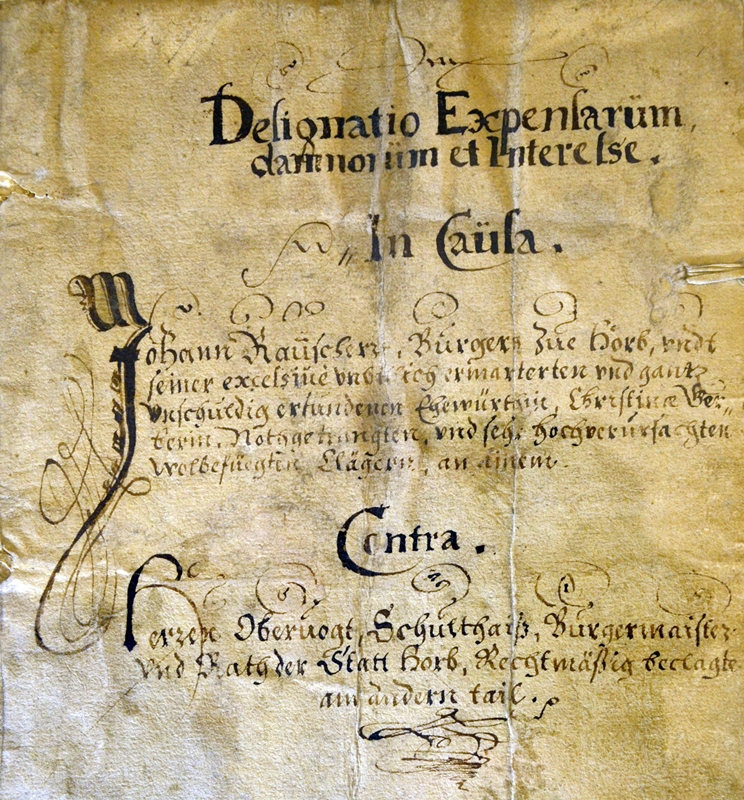 Designatio Expensarüm,
damnorüm et Interesse.
In Caüsa.
Johann Raüschers, Bürgers züe Hörb, vndt
seiner excessiue vnd hoch ermarterten vnd gantz
vnschüldig erfundenen Ehewürthin, Christinæ
terin, Nothgetrungten, vnd sehr hochverürsachten
wolbefüegten Clägern, an ainem
Contra.
Herren Obervogt, Schülthaiß, Bürgermaister
vnd Rath der Statt Horb, Rechtmäßig beclagte
am andern tail.